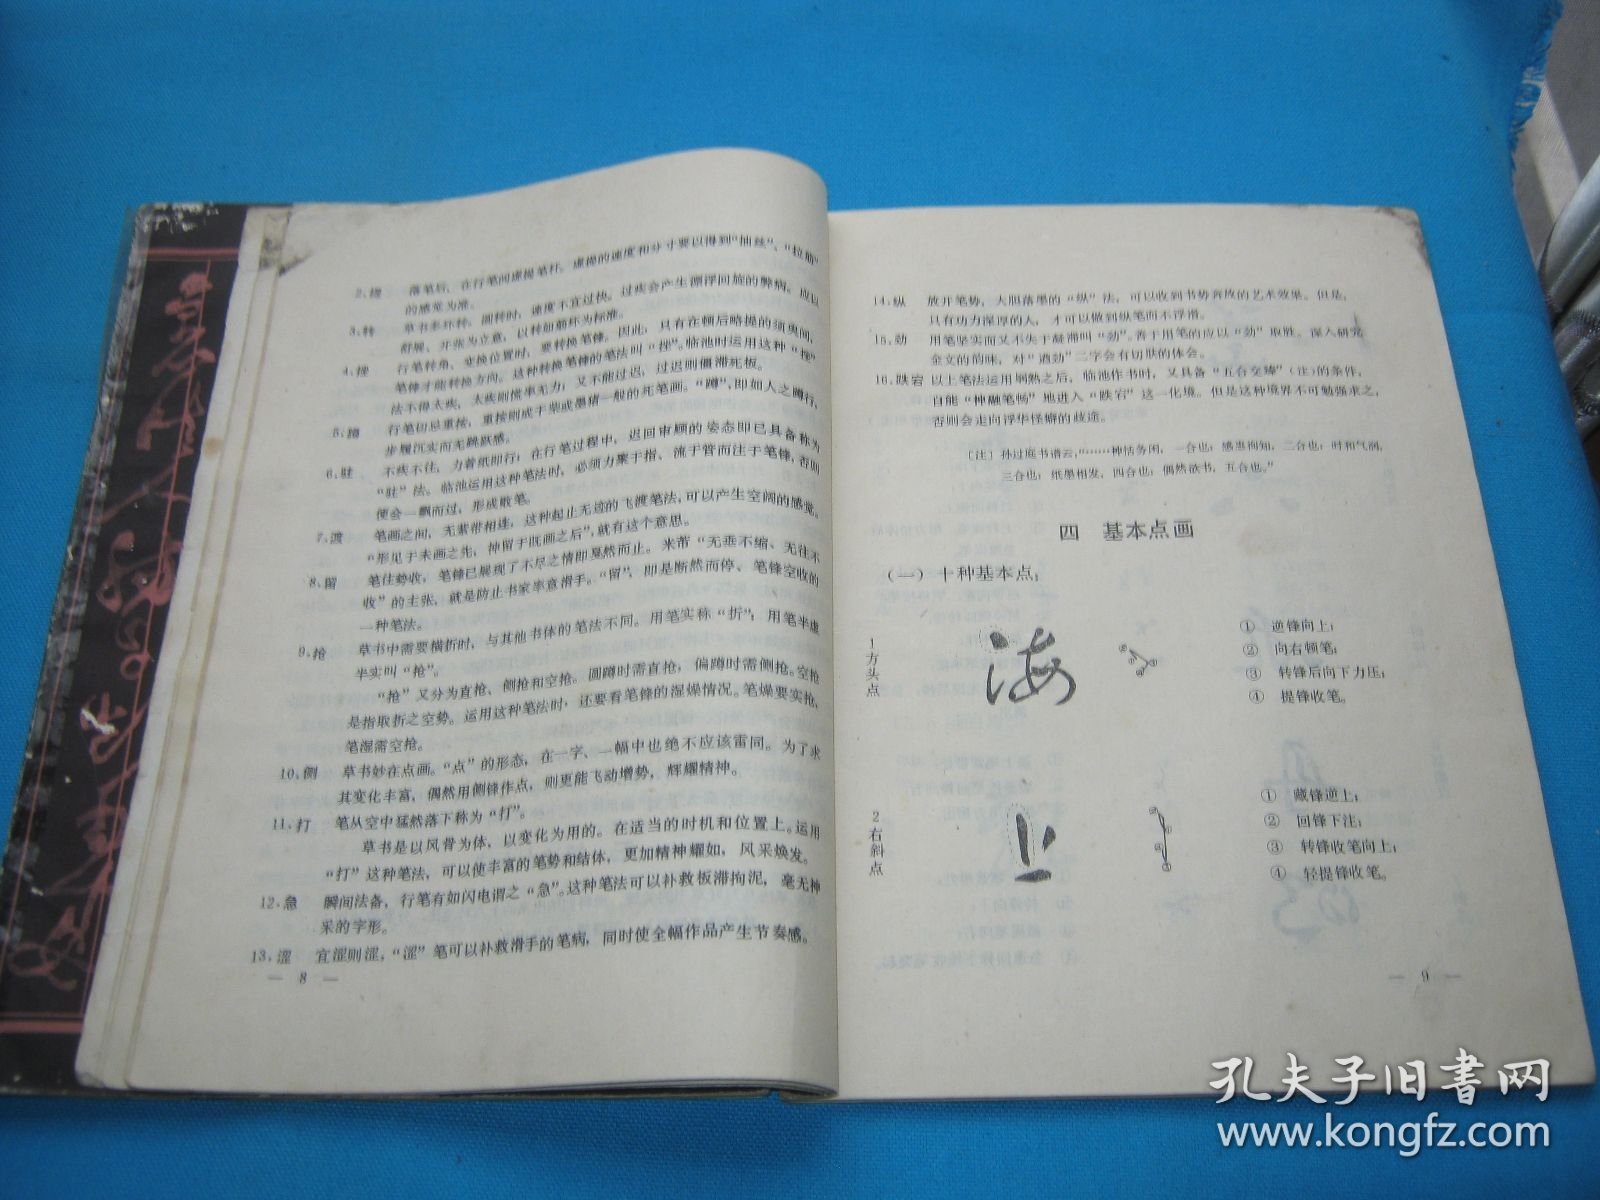 2、提 落笔后，在行笔间虚提笔杆。虚提的速度和分寸要以得到“抽丝”、“拉筋”
的感觉为准。
3、转 草书多环转，圆转时，速度不宜过快。过疾会产生漂浮回旋的弊病。应以
舒展、开张为立意，以转如循环为标准。
4、挫 行笔转角、变换位置时，要转换笔锋。因此，只有在顿后略提的须臾间，
笔锋才能转换方向。这种转换笔锋的笔法叫“挫”。临池时运用这种“挫”
法不得太疾，太疾则流率无力；又不能过迟，过迟则僵滞死板。
5、蹲 行笔切忌重按，重按则成干柴或墨猪一般的死笔画。“蹲”，即如人之蹲行，
步履沉实而无跳跃感。
6、驻 不疾不住，力着纸即行；在行笔过程中，迟回审顾的姿态即已具备称为
“驻”法。临池运用这种笔法时，必须力聚于指、流于管而注于笔锋，否则
便会一飘而过，形成散笔。
7、渡 笔画之间，无萦带相连，这种起止无迹的飞渡笔法，可以产生空阔的感觉。
“形见于未画之先，神留于既画之后”，就有这个意思。
8、留 笔往势收，笔锋已展现了不尽之情即戛然而止。米芾“无垂不缩、无往不
收”的主张，就是防止书家率意滑手。“留”，即是断然而停、笔锋空收的
一种笔法。
9、抢 草书中需要横折时，与其他书体的笔法不同。用笔实称“折”；用笔半虚
半实叫“抢”。
“抢”又分为直抢、侧抢和空抢。圆蹲时需直抢，偏蹲时需侧抢。空抢
是指取折之空势。运用这种笔法时，还要看笔锋的湿燥情况。笔燥要实抢，
笔湿需空抢。
10、侧 草书妙在点画。“点”的形态，在一字、一幅中也绝不应该雷同。为了求
其变化丰富，偶然用侧锋作点，则更能飞动增势，辉耀精神。
11、打 笔从空中猛然落下称为“打”。
草书是以风骨为体，以变化为用的。在适当的时机和位置上。运用
“打”这种笔法，可以使丰富的笔势和结体，更加精神耀如，风采焕发。
12、急 瞬间法备，行笔有如闪电谓之“急”。这种笔法可以补救板滞拘泥，毫无神
采的字形。
13、涩 宜涩则涩，“涩”笔可以补救滑手的笔病，同时使全幅作品产生节奏感。
— 8 —
14、纵 放开笔势，大胆落墨的“纵”法，可以收到书势奔放的艺术效果。但是，
只有功力深厚的人，才可以做到纵笔而不浮滑。
15、劲 用笔坚实而又不失于凝滞叫“劲”。善于用笔的应以“劲”取胜。深入研究
金文的韵味，对“遒劲”二字会有切肤的体会。
16、跌宕 以上笔法运用娴熟之后，临池作书时，又具备“五合交臻”（注）的条件，
自能“神融笔畅”地进入“跌宕”这一化境。但是这种境界不可勉强求之，
否则会走向浮华怪癖的歧途。
〔注〕孙过庭书谱云，“……神恬务闲，一合也；感惠徇知，二合也；时和气润，
三合也；纸墨相发，四合也；偶然欲书，五合也。”
四 基本点画
（一）十种基本点：
1方头点
海
① 逆锋向上；
② 向右顿笔；
③ 转锋后向下力压；
④ 提锋收笔。
2右斜点
① 藏锋逆上；
② 回锋下注；
③ 转锋收笔向上；
④ 轻提锋收笔。
— 9 —
孔夫子旧书网
www.kongfz.com